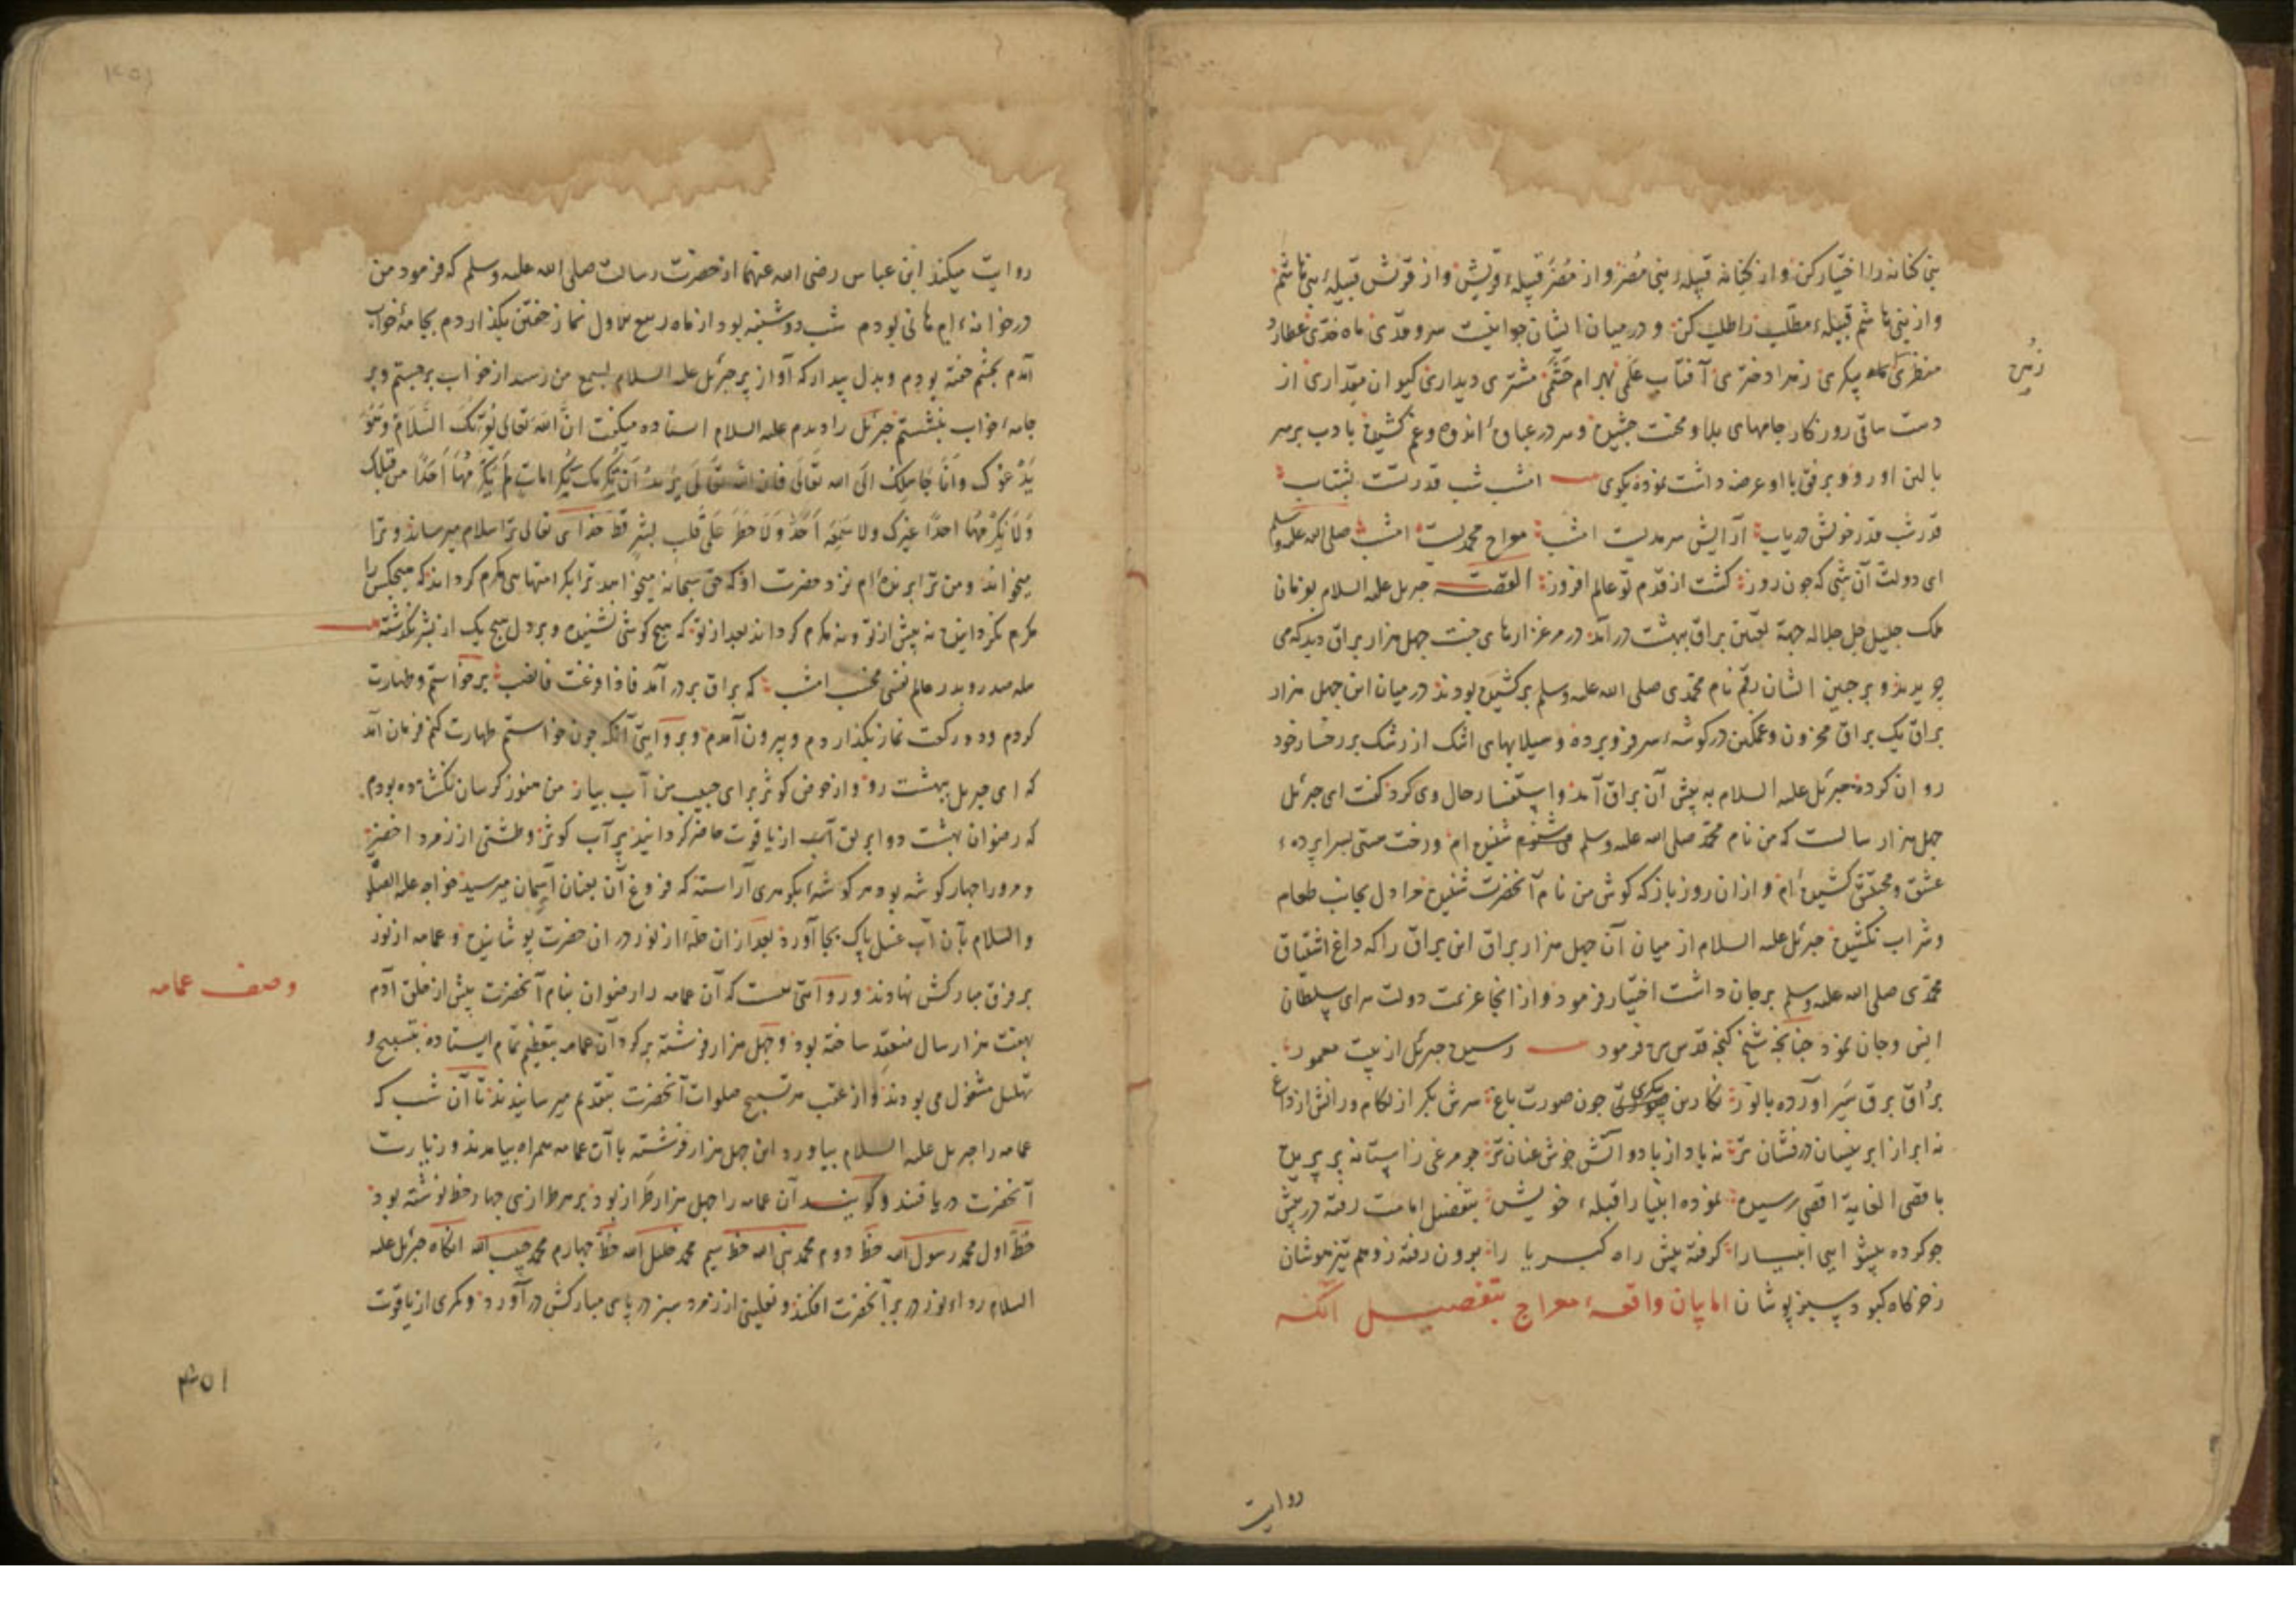 بنی کنانه را اختیار کن و از کنانه قبیلهٔ بنی مُضَر و از مُضَر قبیلهٔ قریش و از قریش قبیلهٔ بنی هاشم
و از بنی هاشم قبیلهٔ مطلّب را طلب کن و در میان ایشان جوانیست سرو قدّی ماه خدّی عطارد
منظری پیکری زهرا دختری آفتاب علمی بهرام حشمی مشتری دیداری کیوان مقداری از
زمین
دست ساقی روزکار جامهای بلا و محنت چشیده و سر در عباء اندوه و غم کشیده بادب بر سر
بالین او رو و برفق با او عرضه داشت نموده بکوی امشب شب قدر تست بشتاب
قدر شب قدر خویش دریاب آرایش سرمدیست امشب معراج محمدیست امشب صلی الله علیه وسلم
ای دولت آن شبی که چون روز کشت از قدم تو عالم افروز القصه جبریل علیه السلام بفرمان
ملک جلیل جل جلاله جهة تعیین براق ببهشت در آمد در مرغزارهای جنت چهل هزار براق دید که می
چریدند و بر جبین ایشان رقم نام محمدی صلی الله علیه وسلم برکشیده بودند در میان این چهل هزار
براق یک براق محزون و غمکین در کوشهٔ سر فرو برده و سیلابهای اشک از رشک بر رخسار خود
روان کرده جبرئیل علیه السلام به پیش آن براق آمد و استفسار حال وی کرد کفت ای جبرئیل
چهل هزار سالست که من نام محمد صلی الله علیه وسلم شنیده ام و رخت هستی بسراپردهٔ
عشق و محبتش کشیده ام و از ان روز باز که کوش من نام آنحضرت شنیده مرا دل بجانب طعام
و شراب نکشیده جبرئیل علیه السلام از میان آن چهل هزار براق این براق را که داغ اشتیاق
محمدی صلی الله علیه وسلم بر جان داشت اختیار فرمود و از انجا عزیمت دولت سرای سلطان
انس و جان نمود چنانچه شیخ کنجه قدس سره فرمود رسیده جبرئیل از بیت معمور
براق برق سیر آورده با نور نکارین پیکری چون صورت باغ سرش بکر از لکام و رانش از داغ
نه ابر از ابر نیسان درفشان تر نه باد از باد و آتش خوش عنان تر چو مرغی ز آستانه بر پریده
باقصی الغایة اقصی رسیده نموده انبیا را قبلهٔ خویش بتفضیل امامت رفته در پیش
چو کرده پیشوایی انبیا را کرفته پیش راه کبریا را برون رفته ز وهم تیزهوشان
ز خرکاه کبود سبزپوشان اما بیان واقعهٔ معراج بتفصیل آنکه
روایت
روایت میکند ابن عباس رضی الله عنهما از حضرت رسالت صلی الله علیه وسلم که فرمود من
در خانهٔ ام هانی بودم شب دوشنبه بود از ماه ربیع الاول نماز خفتن بکذاردم بجامهٔ خواب
آمدم بچشم خفته بودم و بدل بیدار که آواز پر جبرئیل علیه السلام بسمع من رسید از خواب برجستم و بر
جامهٔ خواب بنشستم جبرئیل را دیدم علیه السلام استاده میکفت انّ الله تعالی یُقرئک السّلام و هُوَ
یَدْعُوکَ وانا حَامِلُکَ الی الله تعالی فان الله تعالی یُریدُ ان یُکرمک بکرامات لَم یُکرم بها احدًا من قبلک
وَلا یُکرم بها احدًا غیرک ولا سَمِعَه اَحَدٌ وَلا خَطَرَ عَلی قلب بشر قط خدای تعالی ترا سلام میرساند و ترا
میخواند و من ترا برندهٔ ام نزد حضرت او که حق سبحانه میخواهد ترا بکرامتهای مکرم کرداند که هیچکس را
مکرم نکردانیده پیش از تو و نه مکرم کرداند بعد از تو که هیچ کوشی نشنیده و بر دل هیچ یک از بشر نکذشته
که براق بر در آمد فاذا فرغت فانصب برخواستم و طهارت
کردم و دو رکعت نماز بکذاردم و بیرون آمدم و بروایتی آنکه چون خواستم طهارت کنم فرمان آمد
که ای جبریل ببهشت رو و از حوض کوثر برای حبیب من آب بیار من هنوز کریبان نکشاده بودم
که رضوان بهشت دو ابریق از یاقوت حاضر کردانید پر آب کوثر و طشتی از زمرد اخضر
و مر ورا چهار کوشه بود هر کوشهٔ بکوهری آراسته که فروغ آن بعنان آسمان میرسید خواجه علیه الصلوة
والسلام بآن آب غسل پاک بجا آورد بعد از ان حلهٔ از نور در ان حضرت پوشانیده و عمامه از نور
بر فرق مبارکش نهادند و روایتی هست که آن عمامه را رضوان بنام آنحضرت پیش از خلق آدم
وصف عمامه
بهفت هزار سال منعقد ساخته بود و چهل هزار فرشته بر کرد آن عمامه بتعظیم تمام ایستاده بتسبیح و
تهلیل مشغول می بودند و از عقب هر تسبیح صلوات آنحضرت بتقدیم میرسانیدند تا آن شب که
عمامه را جبریل علیه السلام بیاورد این چهل هزار فرشته با آن عمامه همراه بیامدند و زیارت
آنحضرت دریافتند و کویند آن عمامه را چهل هزار طراز بود بر هر طرازی چهار خط نوشته بود
خط اول محمد رسول الله خط دوم محمد نبی الله خط سیم محمد خلیل الله خط چهارم محمد حبیب الله آنکاه جبرئیل علیه
السلام رداء نور در بر آنحضرت افکند و نعلین از زمرد سبز در پای مبارکش در آورد و کمری از یاقوت